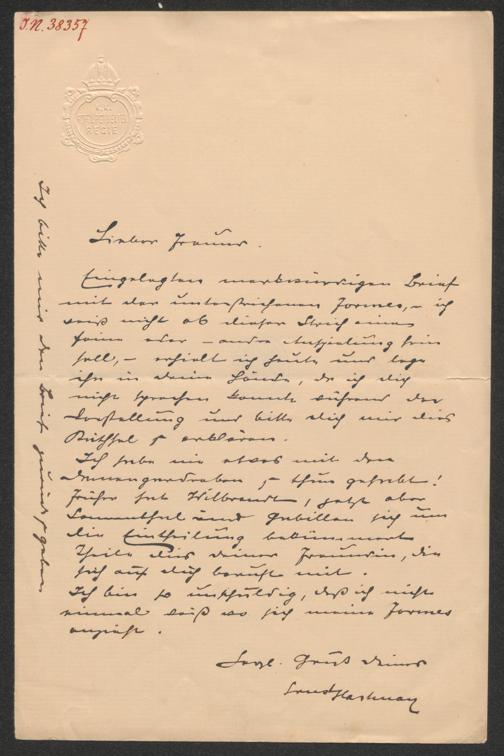 I.N. 38357
K.K.
REGIE
Lieber Freund.
Eingelegten merkwürdigen Brief
mit der unterstrichenen Formes, – ich
weiß nicht ob dieser Strich eine
feine oder – andre Anspielung sein
soll, – erhielt ich heute und lege
ihn in deine Hände, da ich dich
nicht sprechen konnte während der
Vorstellung und bitte dich mir dies
Räthsel z erklären.
Ich habe nie etwas mit den
Damengarderoben z thun gehabt!
Früher hat Wilbrandt, jetzt aber
Sonnenthal und Gabillon sich um
die Eintheilung bekümmert
Theile dies deiner Freundin, die
sich auf dich beruft mit.
Ich bin so unschuldig, daß ich nicht
einmal weiß wo sich meine Formes
anzieht.
Herzl. Gruß deines
Ernst Hartmann
Ich bitte mir den Brief zurück z geben